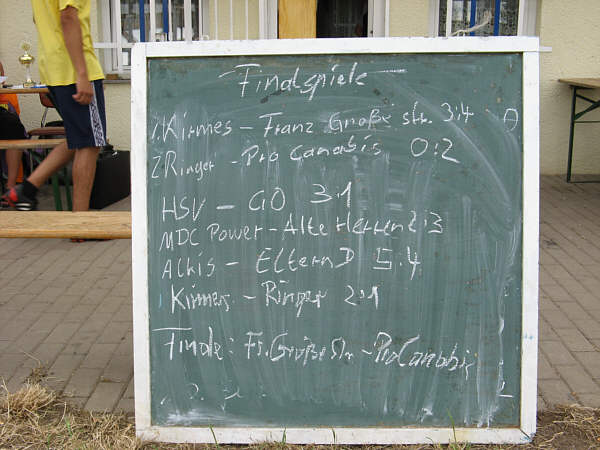 Finalspiele
1. Kirmes - Franz Große str. 3:4
2. Ringer - Pro Canabis 0:2
HSV - GO 3:1
MDC Power - Alte Herren 2:3
Alkis - Eltern D 5:4
Kirmes - Ringer 2:1
Finale: Fr. Große Str - Pro Canabis